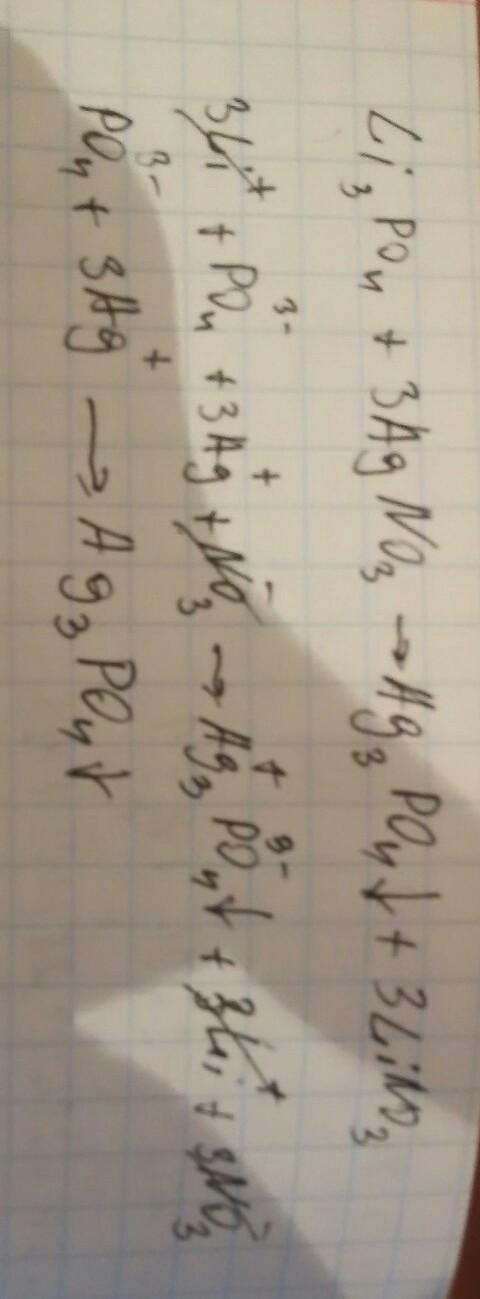 Li₃PO₄ + 3AgNO₃ → Ag₃PO₄↓ + 3LiNO₃
3Li⁺ + PO₄³⁻ + 3Ag⁺ + NO₃⁻ → Ag₃⁺PO₄³⁻↓ + 3Li⁺ + 3NO₃⁻
PO₄³⁻ + 3Ag⁺ → Ag₃PO₄↓